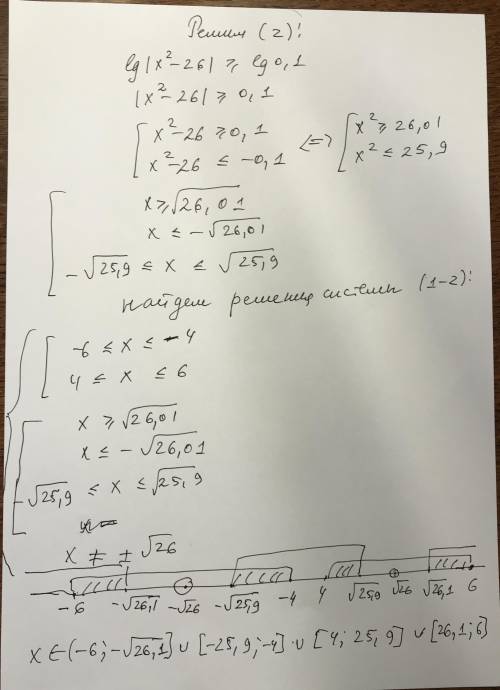 Решим (2):
lg|x²-26| ≥ lg0,1
|x²-26| ≥ 0,1
[ x²-26 ≥ 0,1 <=> [ x² ≥ 26,01
x²-26 ≤ -0,1 x² ≤ 25,9
x ≥ √26,01
x ≤ -√26,01
-√25,9 ≤ x ≤ √25,9
найдем решения системы (1-2):
-6 ≤ x ≤ -4
4 ≤ x ≤ 6
x ≥ √26,01
x ≤ -√26,01
-√25,9 ≤ x ≤ √25,9
x ≠ ±√26
-6 -√26,1 -√26 -√25,9 -4 4 √25,9 √26 √26,1 6
x ∈ (-6; -√26,1] ∪ [-25,9; -4] ∪ [4; 25,9] ∪ [26,1; 6)